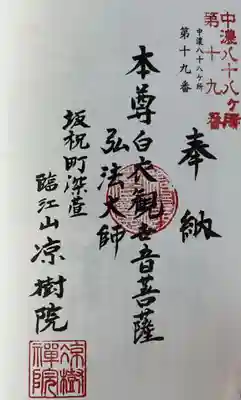 中濃八十八ケ所
第十九番
中濃八十八ケ所
第十九番
奉納
本尊白衣観世音菩薩
弘法大師
坂祝町深萱
臨江山凉樹院
凉樹禅院